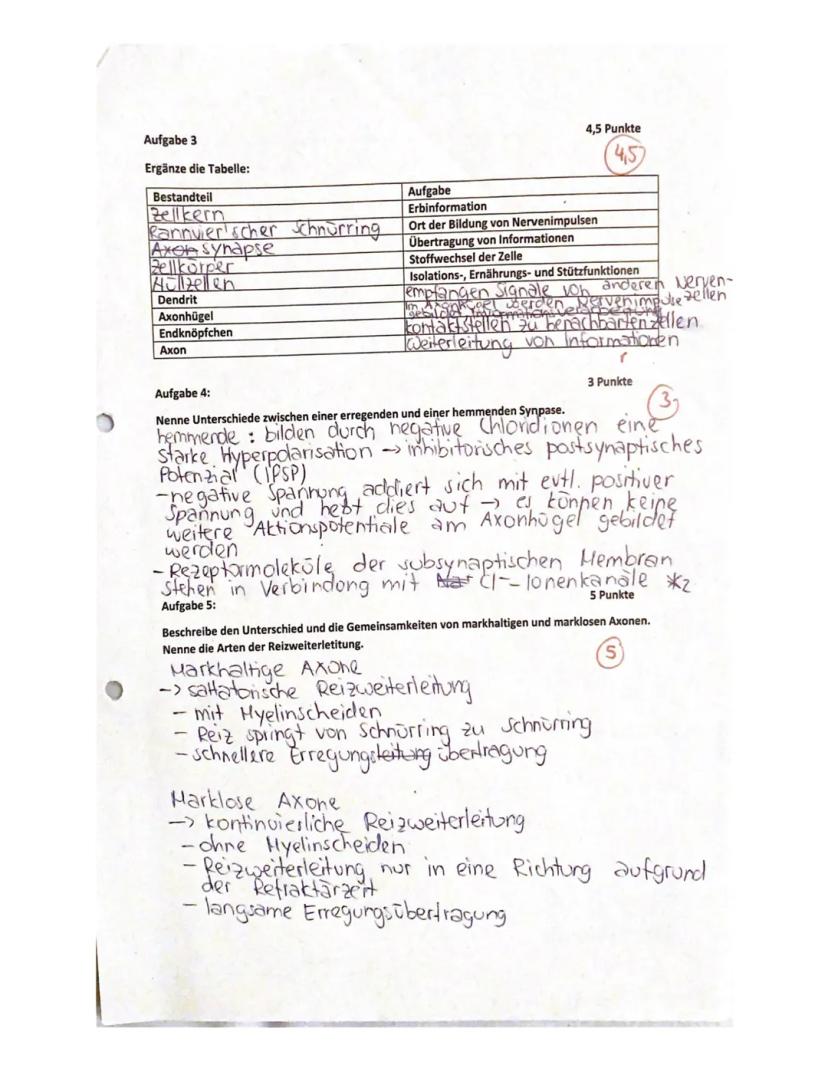 4,5 Punkte
Aufgabe 3
4,5
Ergänze die Tabelle:
Bestandteil Aufgabe
Zellkern Erbinformation
Rannvier'scher Schnürring Ort der Bildung von Nervenimpulsen
Axon Synapse Übertragung von Informationen
Zellkörper Stoffwechsel der Zelle
Hüllzellen Isolations-, Ernährungs- und Stützfunktionen
Dendrit empfangen Signale von anderen Nerven-zellen
Axonhügel Im Axonhügel werden Nervenimpulse gebildet Informationsverarbeitung
Endknöpfchen Kontaktstellen zu benachbarten Zellen
Axon Weiterleitung von Informationen
r
3 Punkte
Aufgabe 4:
3
Nenne Unterschiede zwischen einer erregenden und einer hemmenden Synpase.
hemmende : bilden durch negative Chloridionen eine
starke Hyperpolarisation -> inhibitorisches postsynaptisches
Potenzial (IPSP)
-negative Spannung addiert sich mit evtl. positiver
Spannung und hebt dies auf -> es können keine
weitere Aktionspotentiale am Axonhügel gebildet
werden
- Rezeptormoleküle der subsynaptischen Membran
stehen in Verbindung mit Na+ Cl⁻-Ionenkanäle *2
5 Punkte
Aufgabe 5:
Beschreibe den Unterschied und die Gemeinsamkeiten von markhaltigen und marklosen Axonen.
Nenne die Arten der Reizweiterletitung.
5
Markhaltige Axone
-> saltatorische Reizweiterleitung
- mit Myelinscheiden
- Reiz springt von Schnürring zu Schnürring
- schnellere Erregungsleitung übertragung
Marklose Axone
-> kontinuierliche Reizweiterleitung
- ohne Myelinscheiden
- Reizweiterleitung nur in eine Richtung aufgrund
der Refraktärzeit
- langsame Erregungsübertragung